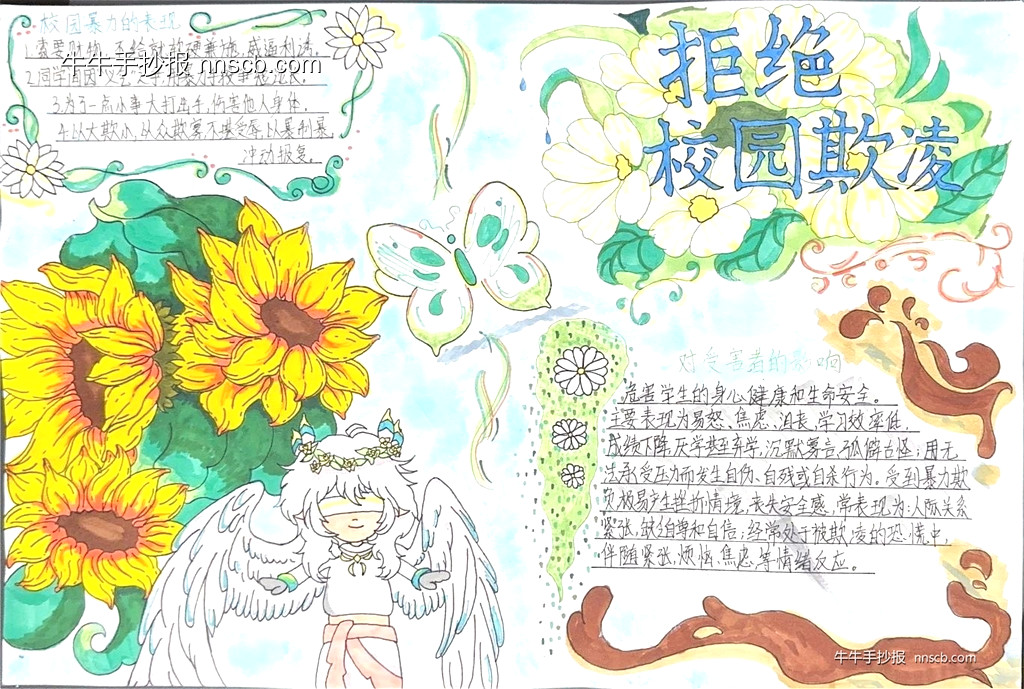 校园暴力的表现
1.索要财物,不给就拳硬兼施,威逼利诱。
牛牛手抄报 nnscb.com
3.为了一点小事大打出手,伤害他人身体.
4.以大欺小,从众欺寡不堪受辱,以暴制暴
冲动报复。
拒绝
校园欺凌
对受害者的影响
危害学生的身心健康和生命安全。
主要表现为易怒、焦虑、沮丧,学习效率低,
成绩下降,厌学甚至弃学,沉默寡言,孤僻古怪;用无
法承受压力而发生自伤、自残或自杀行为。受到暴力欺
极易产生挫折情境,丧失安全感,常表现为:人际关系
紧张,缺自尊和自信;经常处于被欺凌的恐慌中,
伴随紧张,烦恼、焦虑等情绪反应。
牛牛手抄报 nnscb.com